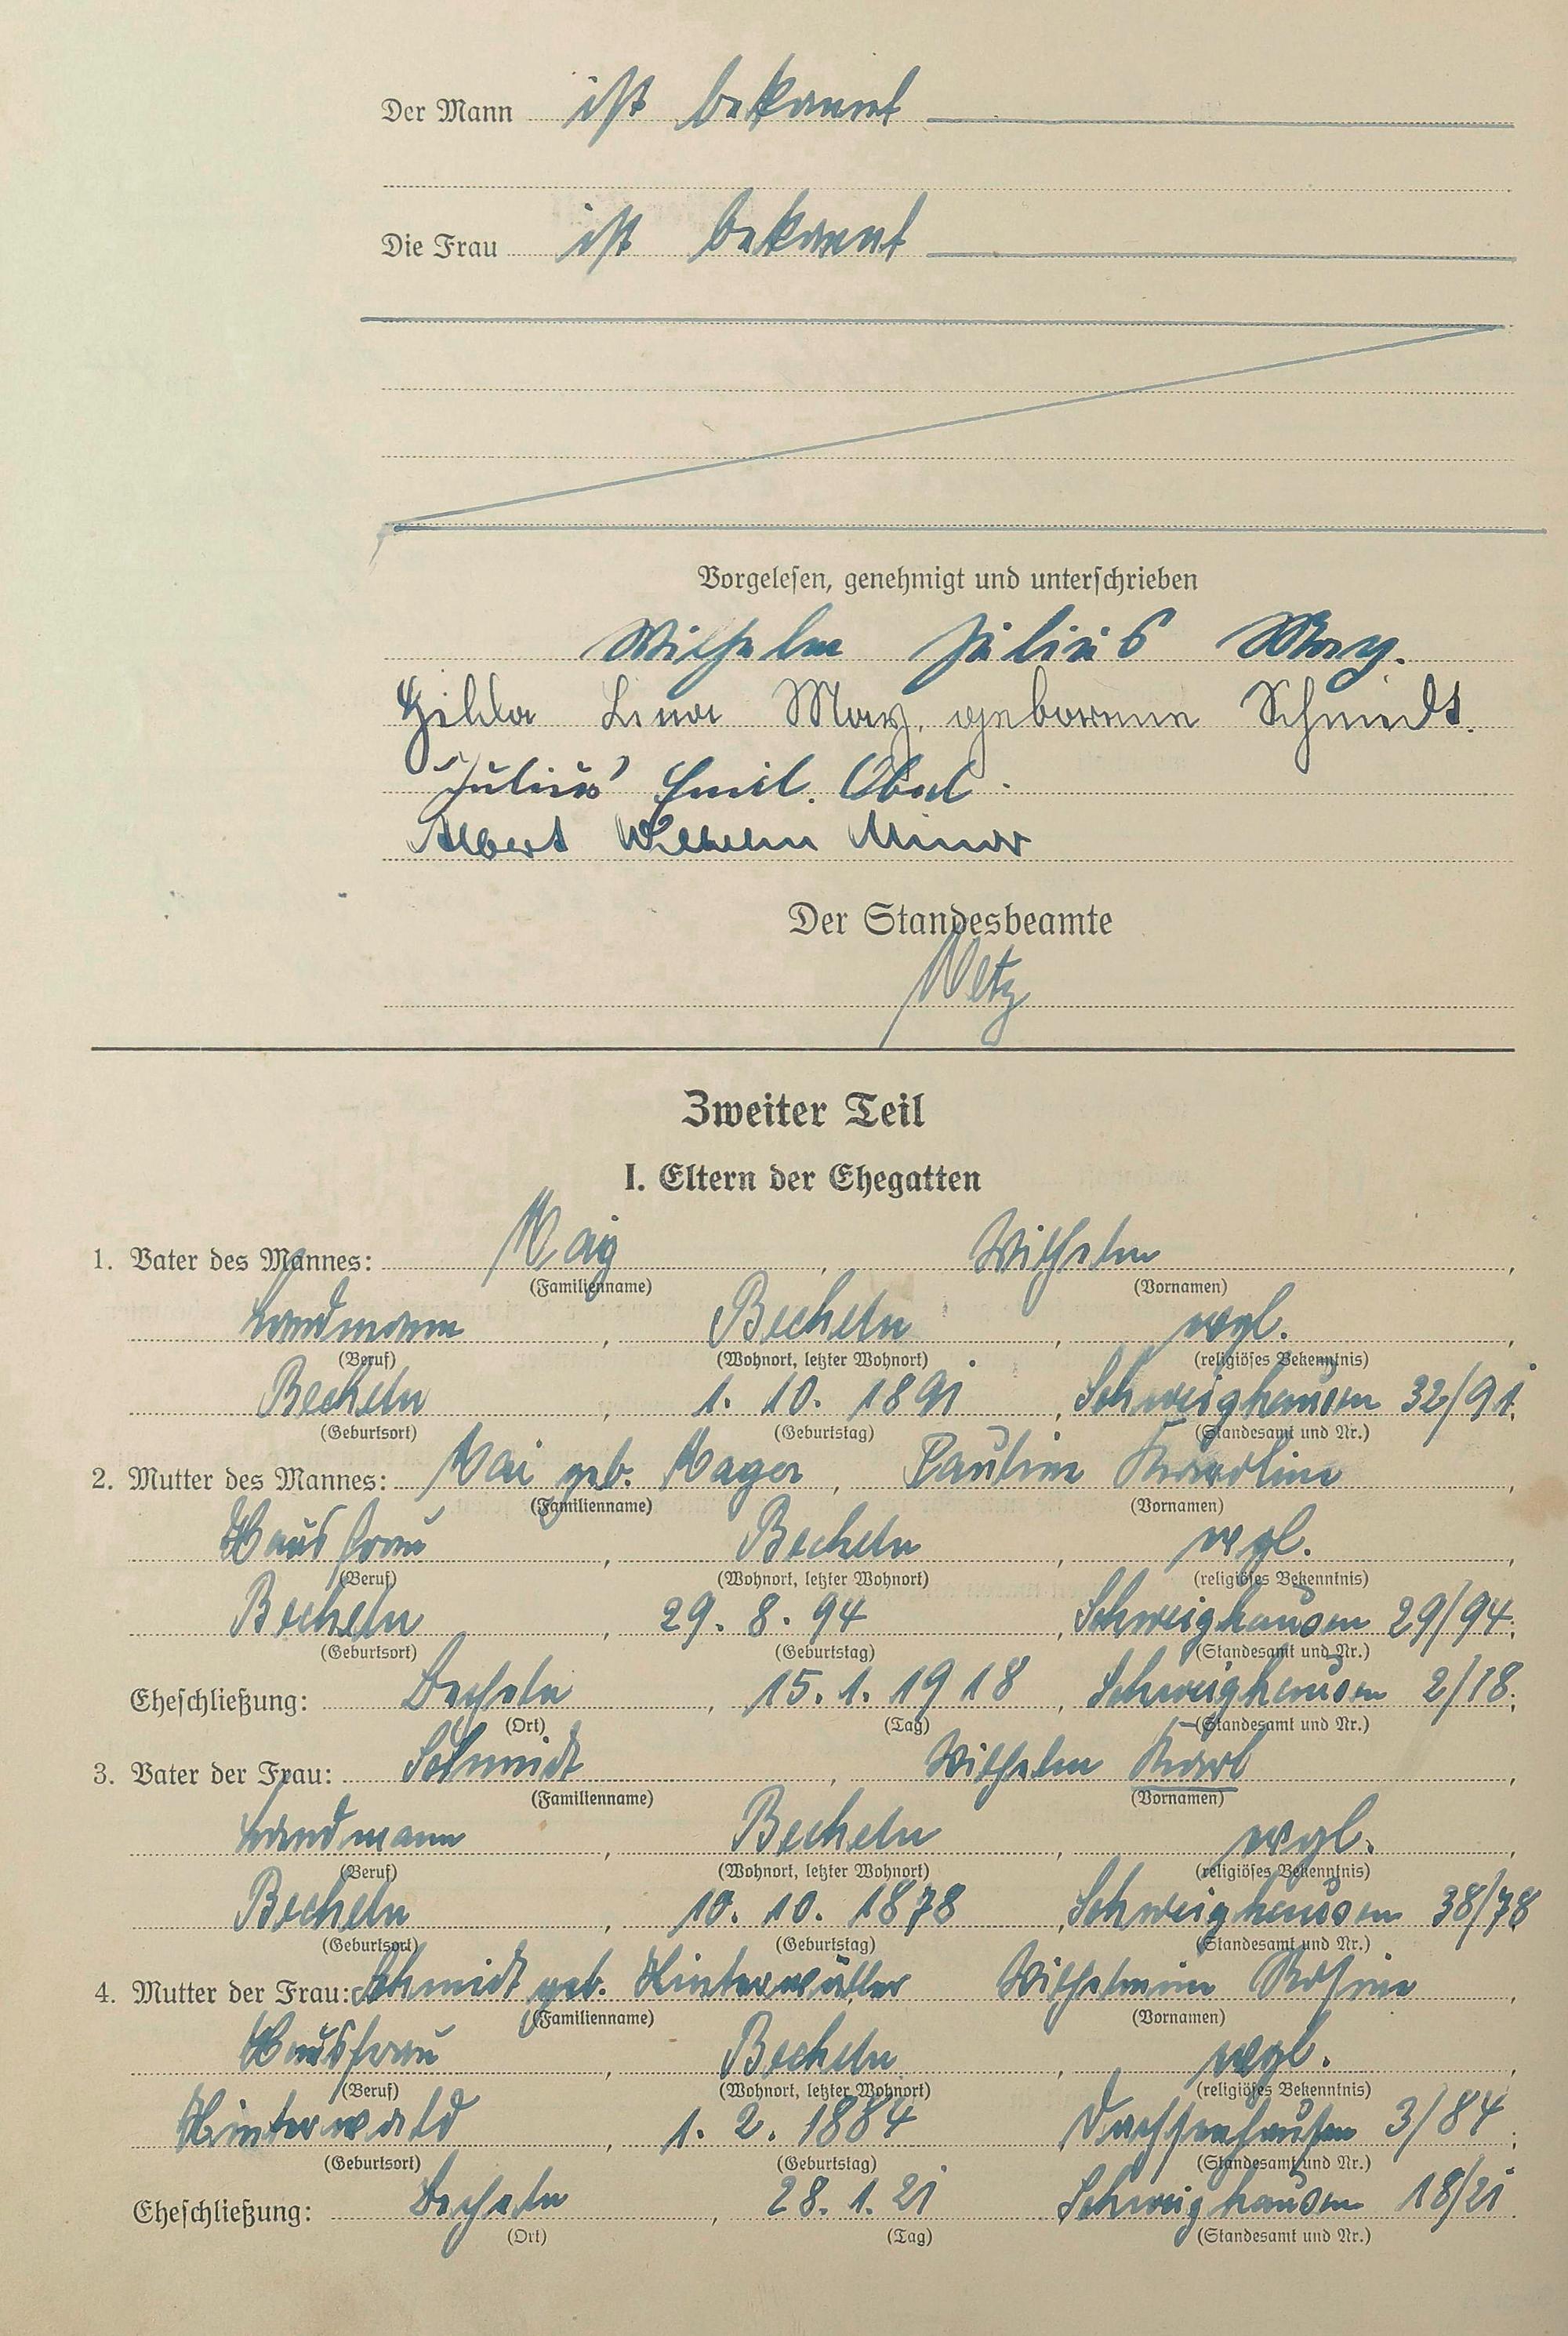 Der Mann ist bekannt
Die Frau ist bekannt
Vorgelesen, genehmigt und unterschrieben
Wilhelm Julius May.
Hilda Lina May, geborene Schmidt.
Julius Emil Obel
Albert Wilhelm Minor
Der Standesbeamte
Metz
Zweiter Teil
I. Eltern der Ehegatten
1. Vater des Mannes: May, Wilhelm,
(Familienname) (Vornamen)
Landmann, Becheln, evgl.,
(Beruf) (Wohnort, letzter Wohnort) (religiöses Bekenntnis)
Becheln, 1. 10. 1891, Schweighausen 32/91;
(Geburtsort) (Geburtstag) (Standesamt und Nr.)
2. Mutter des Mannes: Mai geb. Mager, Pauline Karoline,
(Familienname) (Vornamen)
Hausfrau, Becheln, evgl.,
(Beruf) (Wohnort, letzter Wohnort) (religiöses Bekenntnis)
Becheln, 29. 8. 94, Schweighausen 29/94;
(Geburtsort) (Geburtstag) (Standesamt und Nr.)
Eheschließung: Becheln, 15. 1. 1918, Schweighausen 2/18;
(Ort) (Tag) (Standesamt und Nr.)
3. Vater der Frau: Schmidt, Wilhelm Karl,
(Familienname) (Vornamen)
Landmann, Becheln, evgl.,
(Beruf) (Wohnort, letzter Wohnort) (religiöses Bekenntnis)
Becheln, 10. 10. 1878, Schweighausen 38/78
(Geburtsort) (Geburtstag) (Standesamt und Nr.)
4. Mutter der Frau: Schmidt geb. Hinterwäller Wilhelmine Rosine,
(Familienname) (Vornamen)
Hausfrau, Becheln, evgl.,
(Beruf) (Wohnort, letzter Wohnort) (religiöses Bekenntnis)
Hinterwald, 1. 2. 1884 Dachsenhausen 3/84;
(Geburtsort) (Geburtstag) (Standesamt und Nr.)
Eheschließung: Becheln, 28. 1. 21 Schweighausen 18/21.
(Ort) (Tag) (Standesamt und Nr.)